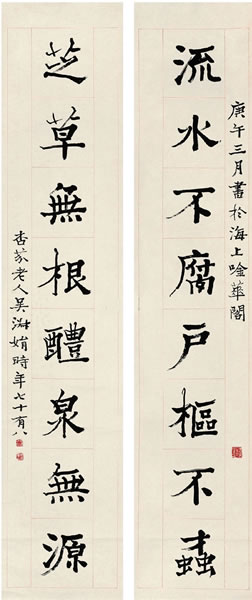 庚午三月書於海上唫華閣
流水不腐戶樞不螙
芝草無根醴泉無源
杏芬老人吳淑娟時年七十有八